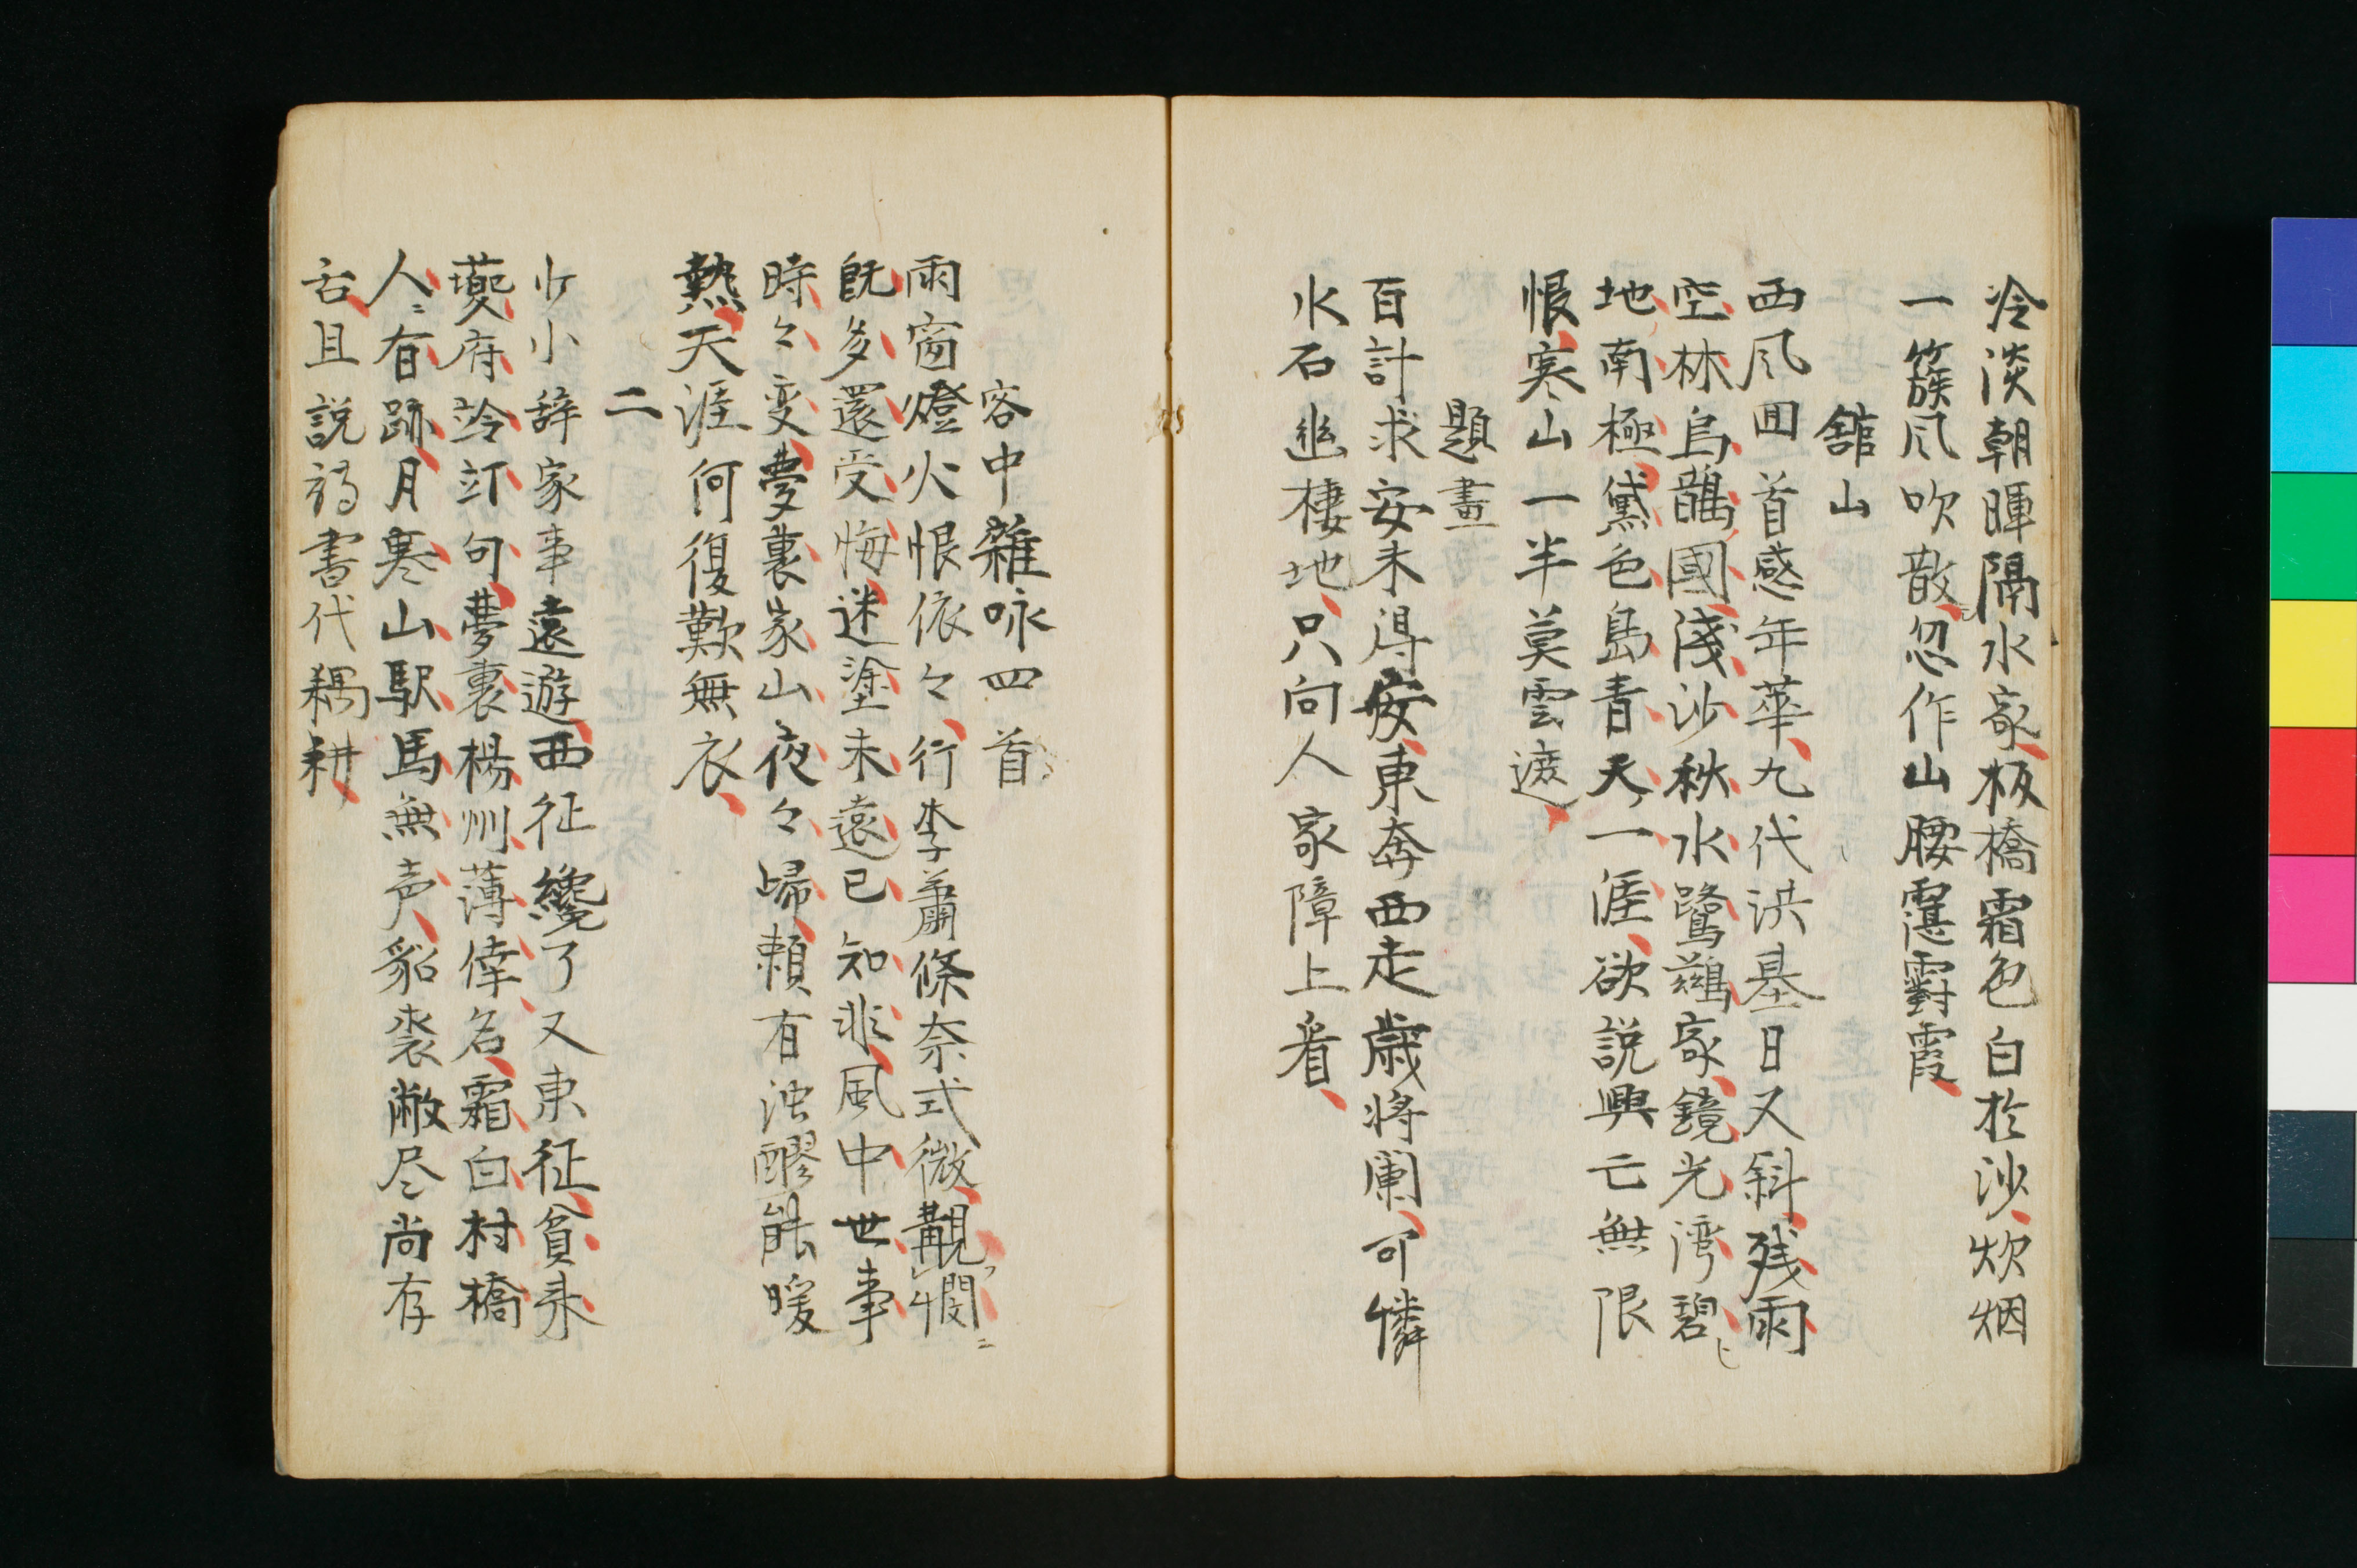 冷淡朝暉隔水家板橋霜色白於沙炊烟
一簇风吹散忽作山腰靄䨴霞
舘山
西风囬首感年華九代洪基日又斜残雨
空林烏鵲國淺沙秋水鷺鷀家鏡光湾碧
地南極黛色島青天一涯欲説興亡無限
恨寒山一半莫雲遮
題畫
百計求安未得安東奔西走歳将闌可憐
水石幽棲地只向人家障上看
客中雜咏四首
雨窗燈火恨依々行李蕭條奈式微覯憫
既多還受侮迷塗未遠已知非風中世事
時々变夢裏家山夜々歸頼有濁醪能暖
熱天涯何復歎無衣
二
少小辞家事遠遊西征纔了又東征貧来
囊府竛竮句夢裏楊州薄倖名霜白村橋
人有跡月寒山駅馬無声貂裘敝尽尚存
舌且説詩書代耦耕